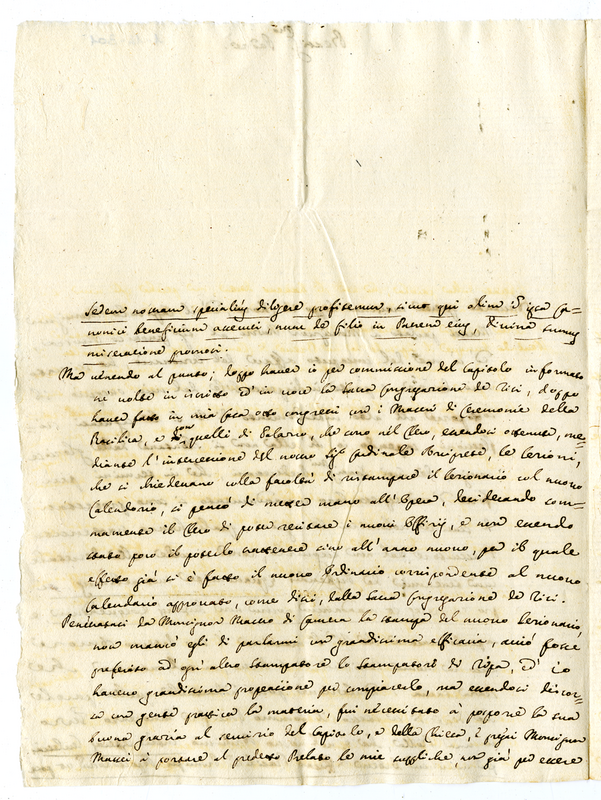 Sedem nostram specialius diligere profitemur, sicut qui olim in ipsa Ca=
nonici beneficium accepti, nunc de filio in Patrem eius, divina sumus
miseratione promoti.
Ma venendo al punto; doppo haver io per commissione del Capitolo informato
più volte in iscritto ed in voce la Sacra Congregazione de Riti, doppo
haver fatto in mia Casa otto congressi con i Maestri di Ceremonie della
Basilica, e con quelli di Palazzo, che sono nel Clero, essendosi ottenute, me=
diante l'intercessione del nostro Sigr Cardinale Arciprete, le lezioni,
che si chiedevano colla facoltà di ristampare il lezionario col nuovo
Calendario, si pensò di metter mano all'Opera, desiderando som=
mamente il Clero di poter recitare i nuovi Offizij, e non essendo
stato poco il poterlo trattenere sino all'anno nuovo, per il quale
effetto già si è fatto il nuovo Ordinario corrispondente al nuovo
Calendario approvato, come dissi, dalla Sacra Congregazione de Riti.
Penetratasi da Monsignor Maestro di Camera la stampa del nuovo lezionario,
non mancò egli di parlarmi con grandissima efficacia, acciò fosse
preferito ad ogn'altro stampatore lo Stampatore di Ripa, ed io
havevo grandissima propensione per compiacerlo, ma essendosi discor=
sa con gente prattica la materia, fui necessitato à posporre la sua
buona grazia al servizio del Capitolo, e della Chiesa, e pregai Monsignor
Mazzei à portare al predetto Prelato le mie suppliche, non già per essere